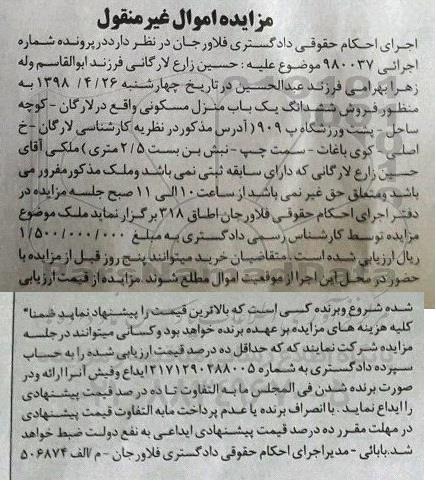 مزایده اموال غیر منقول
اجرای احکام حقوقی دادگستری فلاورجان در نظر دارد در پرونده شماره
اجرائی ۹۸۰۰۳۷ موضوع علیه : حسین زارع لارگانی فرزند ابوالقاسم وله
زهرا بهرامی فرزند عبدالحسین در تاریخ چهارشنبه ۱۳۹۸/۴/۲۶ به
منظور فروش ششدانگ یک باب منزل مسکونی واقع در لارگان - کوچه
ساحل - پشت ورزشگاه پ ۹۰۹ ( آدرس مذکور در نظریه کارشناسی لارگان - خ
اصلی - کوی باغات - سمت چپ - نبش بن بست ۲/۵ متری ) ملکی آقای
حسین زارع لارگانی که دارای سابقه ثبتی نمی باشد وملک مذکور مفروز می
باشد ومتعلق حق غیر نمی باشد از ساعت ۱۰ الی ۱۱ صبح جلسه مزایده در
دفتر اجرای احکام حقوقی فلاورجان اطاق ۳۱۸ برگزار نماید ملک موضوع
مزایده توسط کارشناس رسمی دادگستری به مبلغ ۱/۵۰۰/۰۰۰/۰۰۰
ریال ارزیابی شده است . متقاضیان خرید میتوانند پنج روز قبل از مزایده با
حضور در محل این اجرا از موقعیت اموال مطلع شوند . مزایده از قیمت ارزیابی
شده شروع وبرنده کسی است که بالاترین قیمت را پیشنهاد نماید ضمنا"
کلیه هزینه های مزایده بر عهده برنده خواهد بود و کسانی میتوانند در جلسه
مزایده شرکت نمایند که که حداقل ده درصد قیمت ارزیابی شده را به حساب
سپرده دادگستری به شماره ۲۱۷۱۲۹۰۲۸۸۰۰۵ ایداع وفیش آنرا ارائه ودر
صورت برنده شدن فی المجلس ما به التفاوت تا ده درصد قیمت پیشنهادی
را ایداع نماید . با انصراف برنده یا عدم پرداخت مابه التفاوت قیمت پیشنهادی
در مهلت مقرر ده درصد قیمت پیشنهادی ایداعی به نفع دولت ضبط خواهد
شد . بابائی - مدیر اجرای احکام حقوقی دادگستری فلاورجان - م/الف ۵۰۶۸۷۴